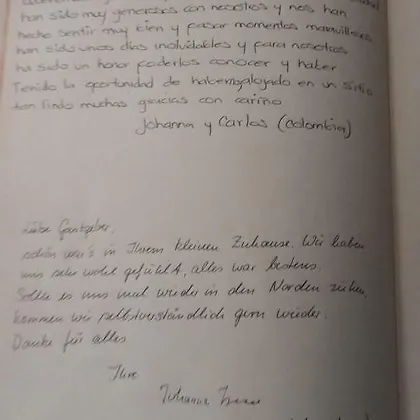 han sido muy generosos con nosotros y nos han
hecho sentir muy bien y pasar momentos maravillosos
han sido unos días inolvidables y para nosotros
ha sido un honor poderlos conocer y haber
Tenido la oportunidad de habernos alojado en un sitio
tan lindo muchas gracias con cariño
Johanna y Carlos (Colombia)
Liebe Gastgeber,
schön war's in Ihrem kleinen Zuhause. Wir haben
uns sehr wohl gefühlt, alles war bestens.
Sollte es uns mal wieder in den Norden ziehen,
kommen wir selbstverständlich gern wieder.
Danke für alles
Ihre
Johanna